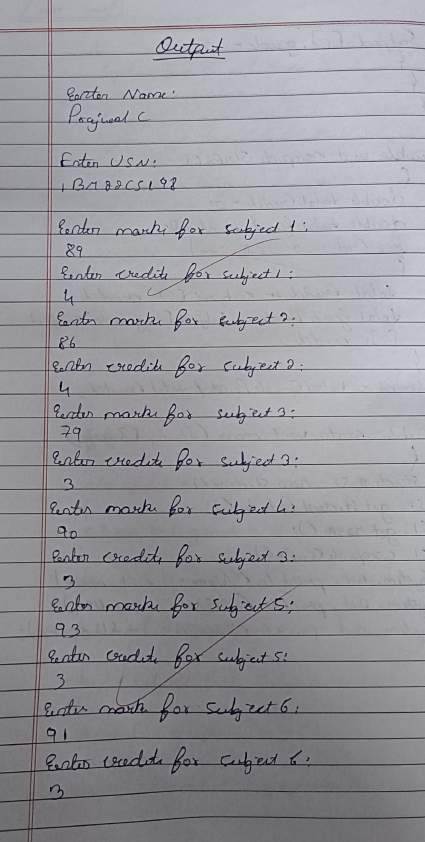 Output
Enter Name:
Prajwal C
Enter USN:
1BM22CS198
Enter marks for subject 1:
89
Enter credits for subject 1:
4
Enter marks for subject 2:
86
Enter credits for subject 2:
4
Enter marks for subject 3:
79
Enter credits for subject 3:
3
Enter marks for subject 4:
90
Enter credits for subject 3:
3
Enter marks for subject 5:
93
Enter credits for subject 5:
3
Enter marks for subject 6:
91
Enter credits for subject 6:
3